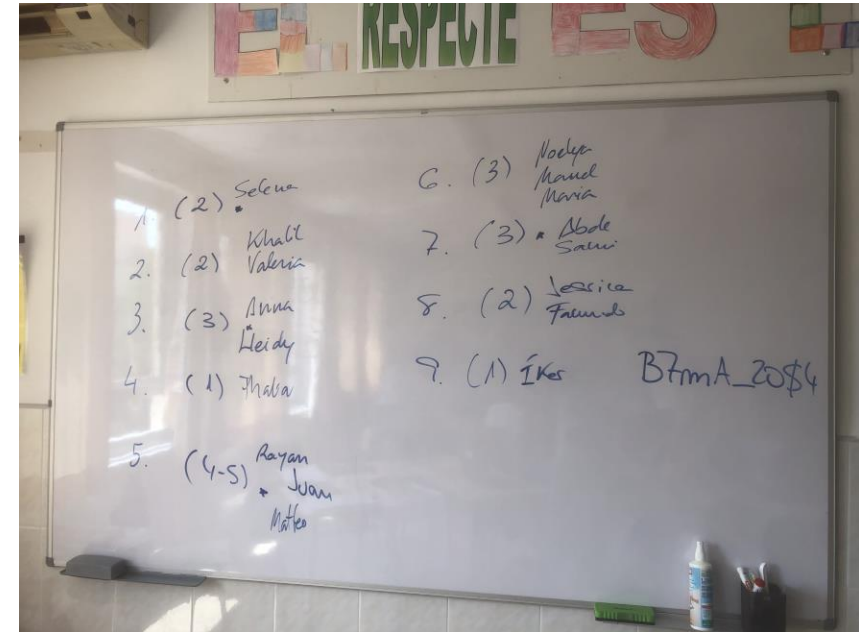 EL RESPECTE ES
1. (2) Selena
2. (2) Khalil
Valeria
3. (3) Anna
Heidy
4. (1) Thaba
5. (4-5) Rayan
Juan
Matteo
6. (3)
Manel
Maria
7. (3) Abde
Salvi
8. (2) Jessica
Facundo
9. (1) Íker
B7mA_20$4